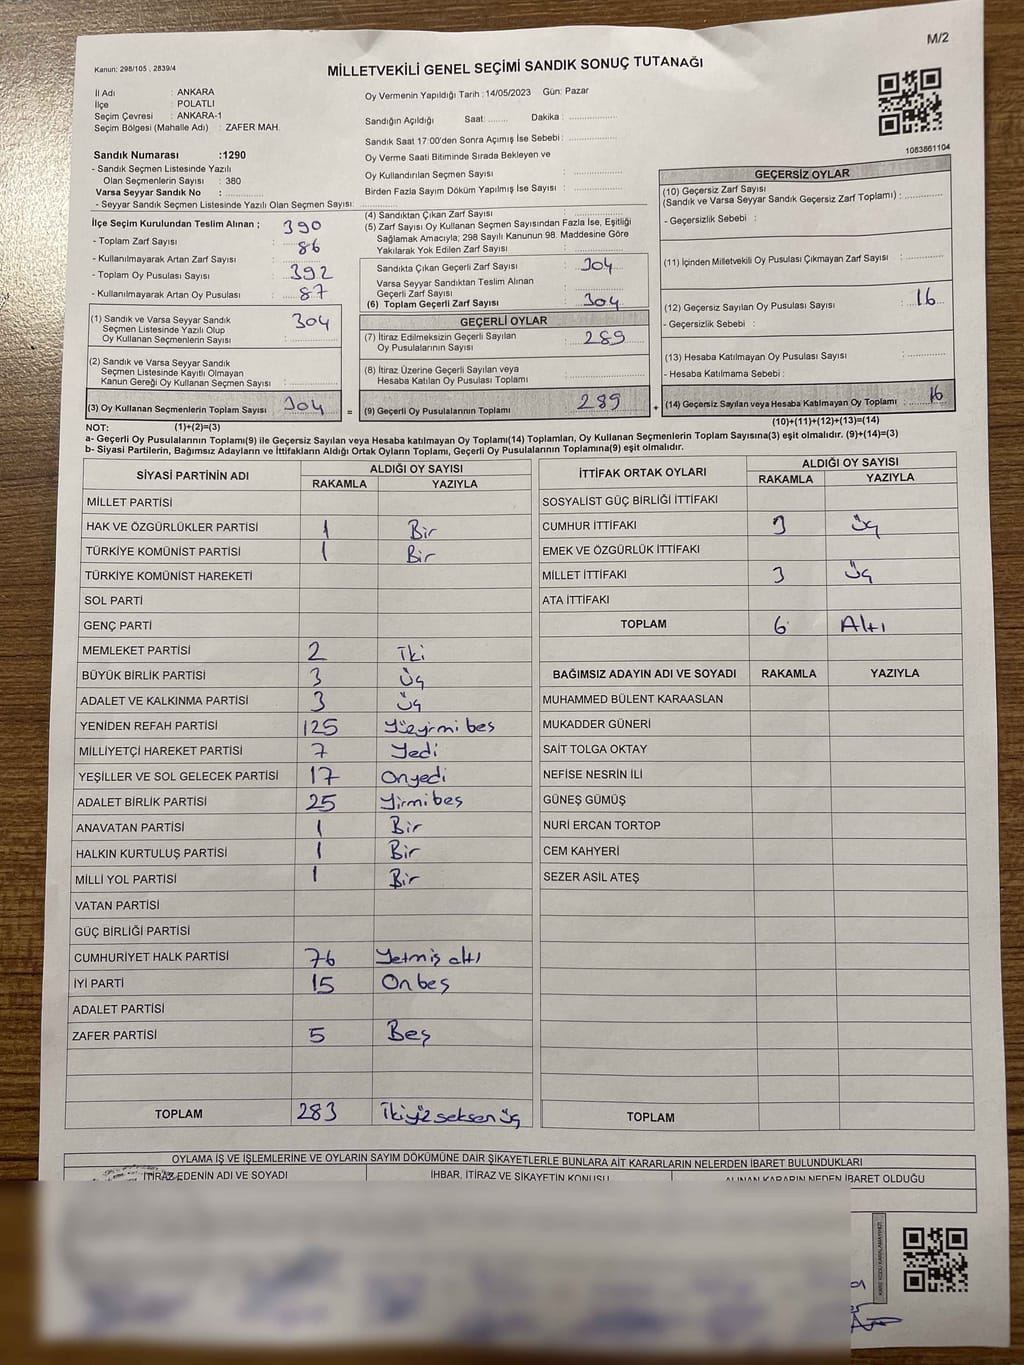 M/2
Kanun: 298/105 , 2839/4
MİLLETVEKİLİ GENEL SEÇİMİ SANDIK SONUÇ TUTANAĞI
İl Adı : ANKARA
İlçe : POLATLI
Seçim Çevresi : ANKARA-1
Seçim Bölgesi (Mahalle Adı) : ZAFER MAH.
Oy Vermenin Yapıldığı Tarih : 14/05/2023 Gün: Pazar
Sandığın Açıldığı Saat: ........ Dakika : ................
Sandık Saat 17:00'den Sonra Açımış İse Sebebi : ................
1083861104
Sandık Numarası :1290
- Sandık Seçmen Listesinde Yazılı
Olan Seçmenlerin Sayısı : 380
Varsa Seyyar Sandık No : ................
- Seyyar Sandık Seçmen Listesinde Yazılı Olan Seçmen Sayısı: ................
Oy Verme Saati Bitiminde Sırada Bekleyen ve
Oy Kullandırılan Seçmen Sayısı : ................
Birden Fazla Sayım Döküm Yapılmış İse Sayısı : ................
İlçe Seçim Kurulundan Teslim Alınan ;
- Toplam Zarf Sayısı : 390
- Kullanılmayarak Artan Zarf Sayısı : 86
- Toplam Oy Pusulası Sayısı : 392
- Kullanılmayarak Artan Oy Pusulası : 87
(1) Sandık ve Varsa Seyyar Sandık
Seçmen Listesinde Yazılı Olup
Oy Kullanan Seçmenlerin Sayısı : 304
(2) Sandık ve Varsa Seyyar Sandık
Seçmen Listesinde Kayıtlı Olmayan
Kanun Gereği Oy Kullanan Seçmen Sayısı : ................
(3) Oy Kullanan Seçmenlerin Toplam Sayısı 304 =
(4) Sandıktan Çıkan Zarf Sayısı : ................
(5) Zarf Sayısı Oy Kullanan Seçmen Sayısından Fazla İse, Eşitliği
Sağlamak Amacıyla; 298 Sayılı Kanunun 98. Maddesine Göre
Yakılarak Yok Edilen Zarf Sayısı : ................
Sandıkta Çıkan Geçerli Zarf Sayısı : 304
Varsa Seyyar Sandıktan Teslim Alınan
Geçerli Zarf Sayısı : ................
(6) Toplam Geçerli Zarf Sayısı : 304
GEÇERLİ OYLAR
(7) İtiraz Edilmeksizin Geçerli Sayılan
Oy Pusulalarının Sayısı : 289
(8) İtiraz Üzerine Geçerli Sayılan veya
Hesaba Katılan Oy Pusulası Toplamı : ................
(9) Geçerli Oy Pusulalarının Toplamı 289 +
GEÇERSİZ OYLAR
(10) Geçersiz Zarf Sayısı
(Sandık ve Varsa Seyyar Sandık Geçersiz Zarf Toplamı) : ............
- Geçersizlik Sebebi :
(11) İçinden Milletvekili Oy Pusulası Çıkmayan Zarf Sayısı : ............
(12) Geçersiz Sayılan Oy Pusulası Sayısı : 16
- Geçersizlik Sebebi :
(13) Hesaba Katılmayan Oy Pusulası Sayısı : ............
- Hesaba Katılmama Sebebi :
(14) Geçersiz Sayılan veya Hesaba Katılmayan Oy Toplamı 16
NOT: (1)+(2)=(3)
(10)+(11)+(12)+(13)=(14)
a- Geçerli Oy Pusulalarının Toplamı(9) ile Geçersiz Sayılan veya Hesaba katılmayan Oy Toplamı(14) Toplamları, Oy Kullanan Seçmenlerin Toplam Sayısına(3) eşit olmalıdır. (9)+(14)=(3)
b- Siyasi Partilerin, Bağımsız Adayların ve İttifakların Aldığı Ortak Oyların Toplamı, Geçerli Oy Pusulalarının Toplamına(9) eşit olmalıdır.
SİYASİ PARTİNİN ADI ALDIĞI OY SAYISI
RAKAMLA YAZIYLA
MİLLET PARTİSİ
HAK VE ÖZGÜRLÜKLER PARTİSİ 1 Bir
TÜRKİYE KOMÜNİST PARTİSİ 1 Bir
TÜRKİYE KOMÜNİST HAREKETİ
SOL PARTİ
GENÇ PARTİ
MEMLEKET PARTİSİ 2 İki
BÜYÜK BİRLİK PARTİSİ 3 Üç
ADALET VE KALKINMA PARTİSİ 3 Üç
YENİDEN REFAH PARTİSİ 125 Yüzyirmi beş
MİLLİYETÇİ HAREKET PARTİSİ 7 Yedi
YEŞİLLER VE SOL GELECEK PARTİSİ 17 Onyedi
ADALET BİRLİK PARTİSİ 25 Yirmibeş
ANAVATAN PARTİSİ 1 Bir
HALKIN KURTULUŞ PARTİSİ 1 Bir
MİLLİ YOL PARTİSİ 1 Bir
VATAN PARTİSİ
GÜÇ BİRLİĞİ PARTİSİ
CUMHURİYET HALK PARTİSİ 76 Yetmiş altı
İYİ PARTİ 15 On beş
ADALET PARTİSİ
ZAFER PARTİSİ 5 Beş
TOPLAM 283 İkiyüz seksen üç
İTTİFAK ORTAK OYLARI ALDIĞI OY SAYISI
RAKAMLA YAZIYLA
SOSYALİST GÜÇ BİRLİĞİ İTTİFAKI
CUMHUR İTTİFAKI 3 Üç
EMEK VE ÖZGÜRLÜK İTTİFAKI
MİLLET İTTİFAKI 3 Üç
ATA İTTİFAKI
TOPLAM 6 Altı
BAĞIMSIZ ADAYIN ADI VE SOYADI RAKAMLA YAZIYLA
MUHAMMED BÜLENT KARAASLAN
MUKADDER GÜNERİ
SAİT TOLGA OKTAY
NEFİSE NESRİN İLİ
GÜNEŞ GÜMÜŞ
NURİ ERCAN TORTOP
CEM KAHYERİ
SEZER ASİL ATEŞ
TOPLAM
OYLAMA İŞ VE İŞLEMLERİNE VE OYLARIN SAYIM DÖKÜMÜNE DAİR ŞİKAYETLERLE BUNLARA AİT KARARLARIN NELERDEN İBARET BULUNDUKLARI
İTİRAZ EDENİN ADI VE SOYADI İHBAR, İTİRAZ VE ŞİKAYETİN KONUSU ALINAN KARARIN NEDEN İBARET OLDUĞU